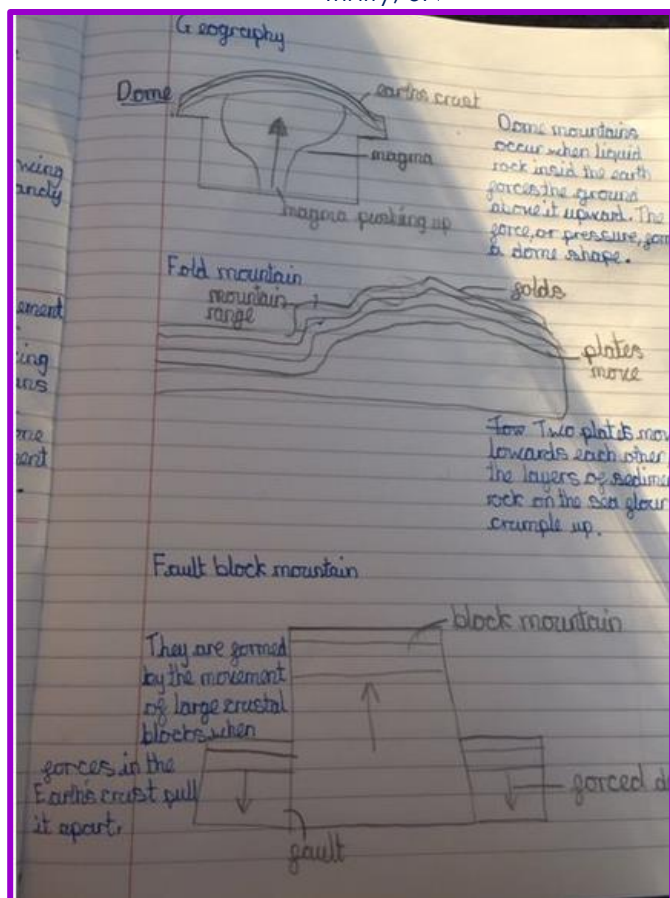 Geography
Dome
earths crust
magma
magma pushing up
Dome mountains
occur when liquid
rock insid the earth
forces the ground
above it upward. The
force, or pressure, for
a dome shape.
Fold mountain
mountain
range
folds
plates
move
Tow Two plates mov
towards each other
the layers of sedime
rock on the sea flour
crumple up.
Fault block mountain
block mountain
They are formed
by the movement
of large crustal
blocks when
forces in the
Earth's crust pull
it apart.
fault
forced d